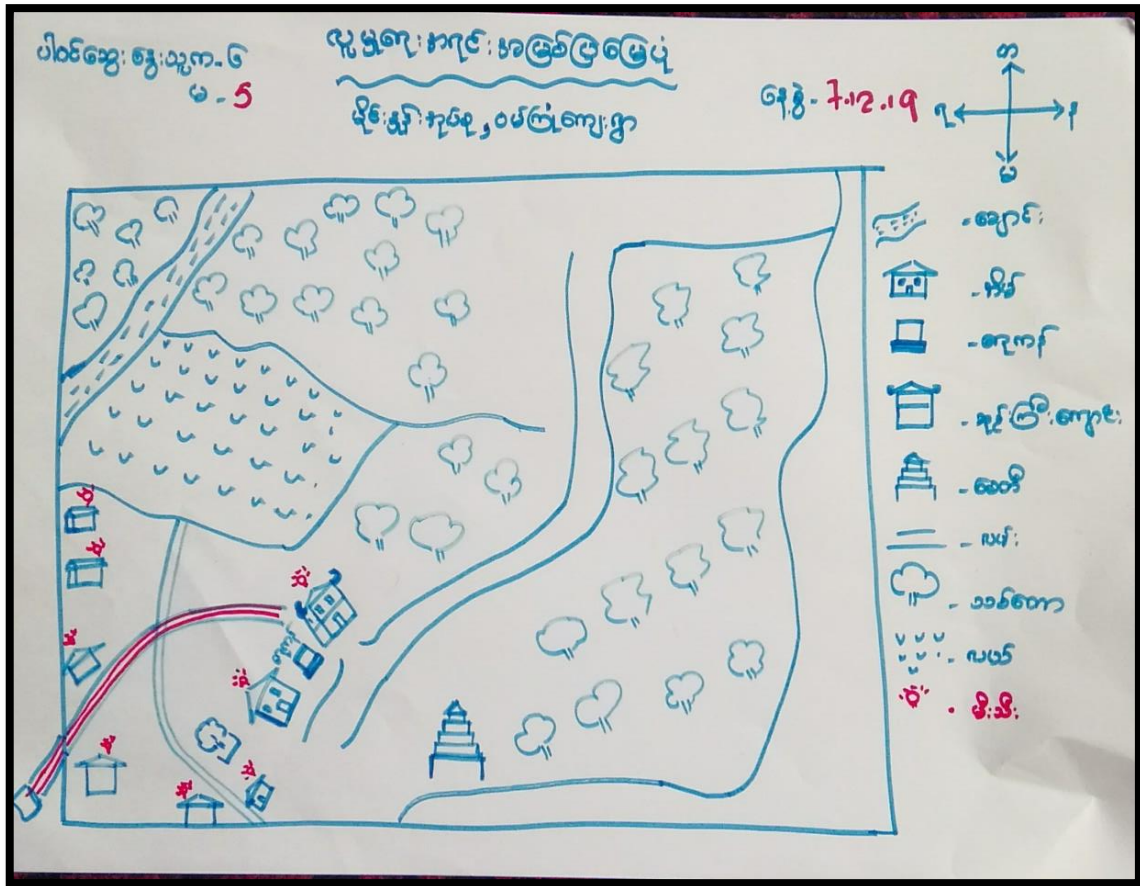 ပါဝင်ဆွေးနွေးသူ က - ၆
မ - 5
လူမှုရေးအရင်းအမြစ်ပြမြေပုံ
နေ့စွဲ - 7.12.19
တ
ရ
န
မ
- ချောင်း
- အိမ်
- ရေကန်
- ဘုန်းကြီးကျောင်း
- စေတီ
- လမ်း
- သစ်တော
- လယ်
- မီးသီး